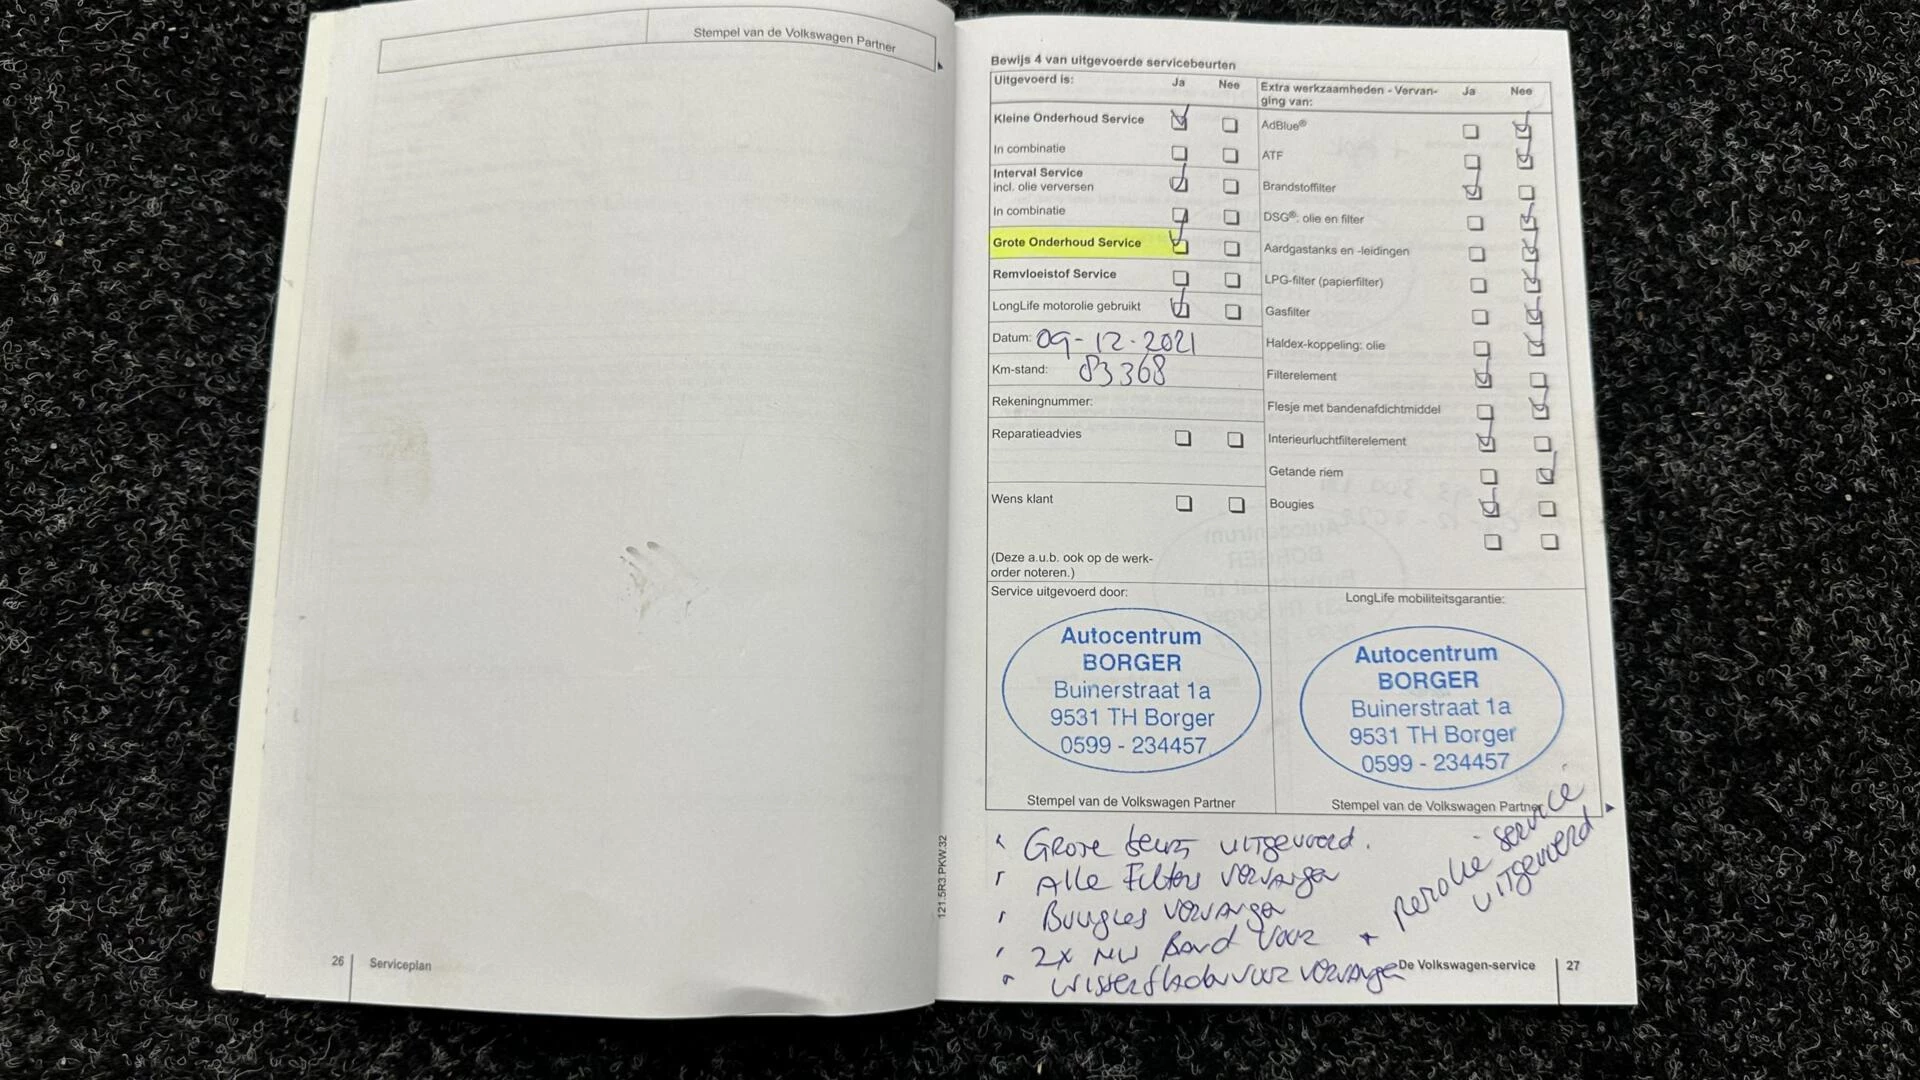 Stempel van de Volkswagen Partner
26 Serviceplan
Bewijs 4 van uitgevoerde servicebeurten
Uitgevoerd is: Ja Nee
Kleine Onderhoud Service
In combinatie
Interval Service
incl. olie verversen
In combinatie
Grote Onderhoud Service
Remvloeistof Service
LongLife motorolie gebruikt
Datum: 09-12-2021
Km-stand: 83368
Rekeningnummer:
Reparatieadvies
Wens klant
(Deze a.u.b. ook op de werk-
order noteren.)
Extra werkzaamheden - Vervan- Ja Nee
ging van:
AdBlue®
ATF
Brandstoffilter
DSG®: olie en filter
Aardgastanks en -leidingen
LPG-filter (papierfilter)
Gasfilter
Haldex-koppeling: olie
Filterelement
Flesje met bandenafdichtmiddel
Interieurluchtfilterelement
Getande riem
Bougies
Service uitgevoerd door:
Autocentrum
BORGER
Buinerstraat 1a
9531 TH Borger
0599 - 234457
Stempel van de Volkswagen Partner
LongLife mobiliteitsgarantie:
Autocentrum
BORGER
Buinerstraat 1a
9531 TH Borger
0599 - 234457
Stempel van de Volkswagen Partner
Grote beurt uitgevoerd.
Alle Filters vervangen
Bougies vervangen
2x nw Band voor
wisserbladen voor vervangen
+ service
uitgevoerd
121.5R3.PKW.32
De Volkswagen-service 27